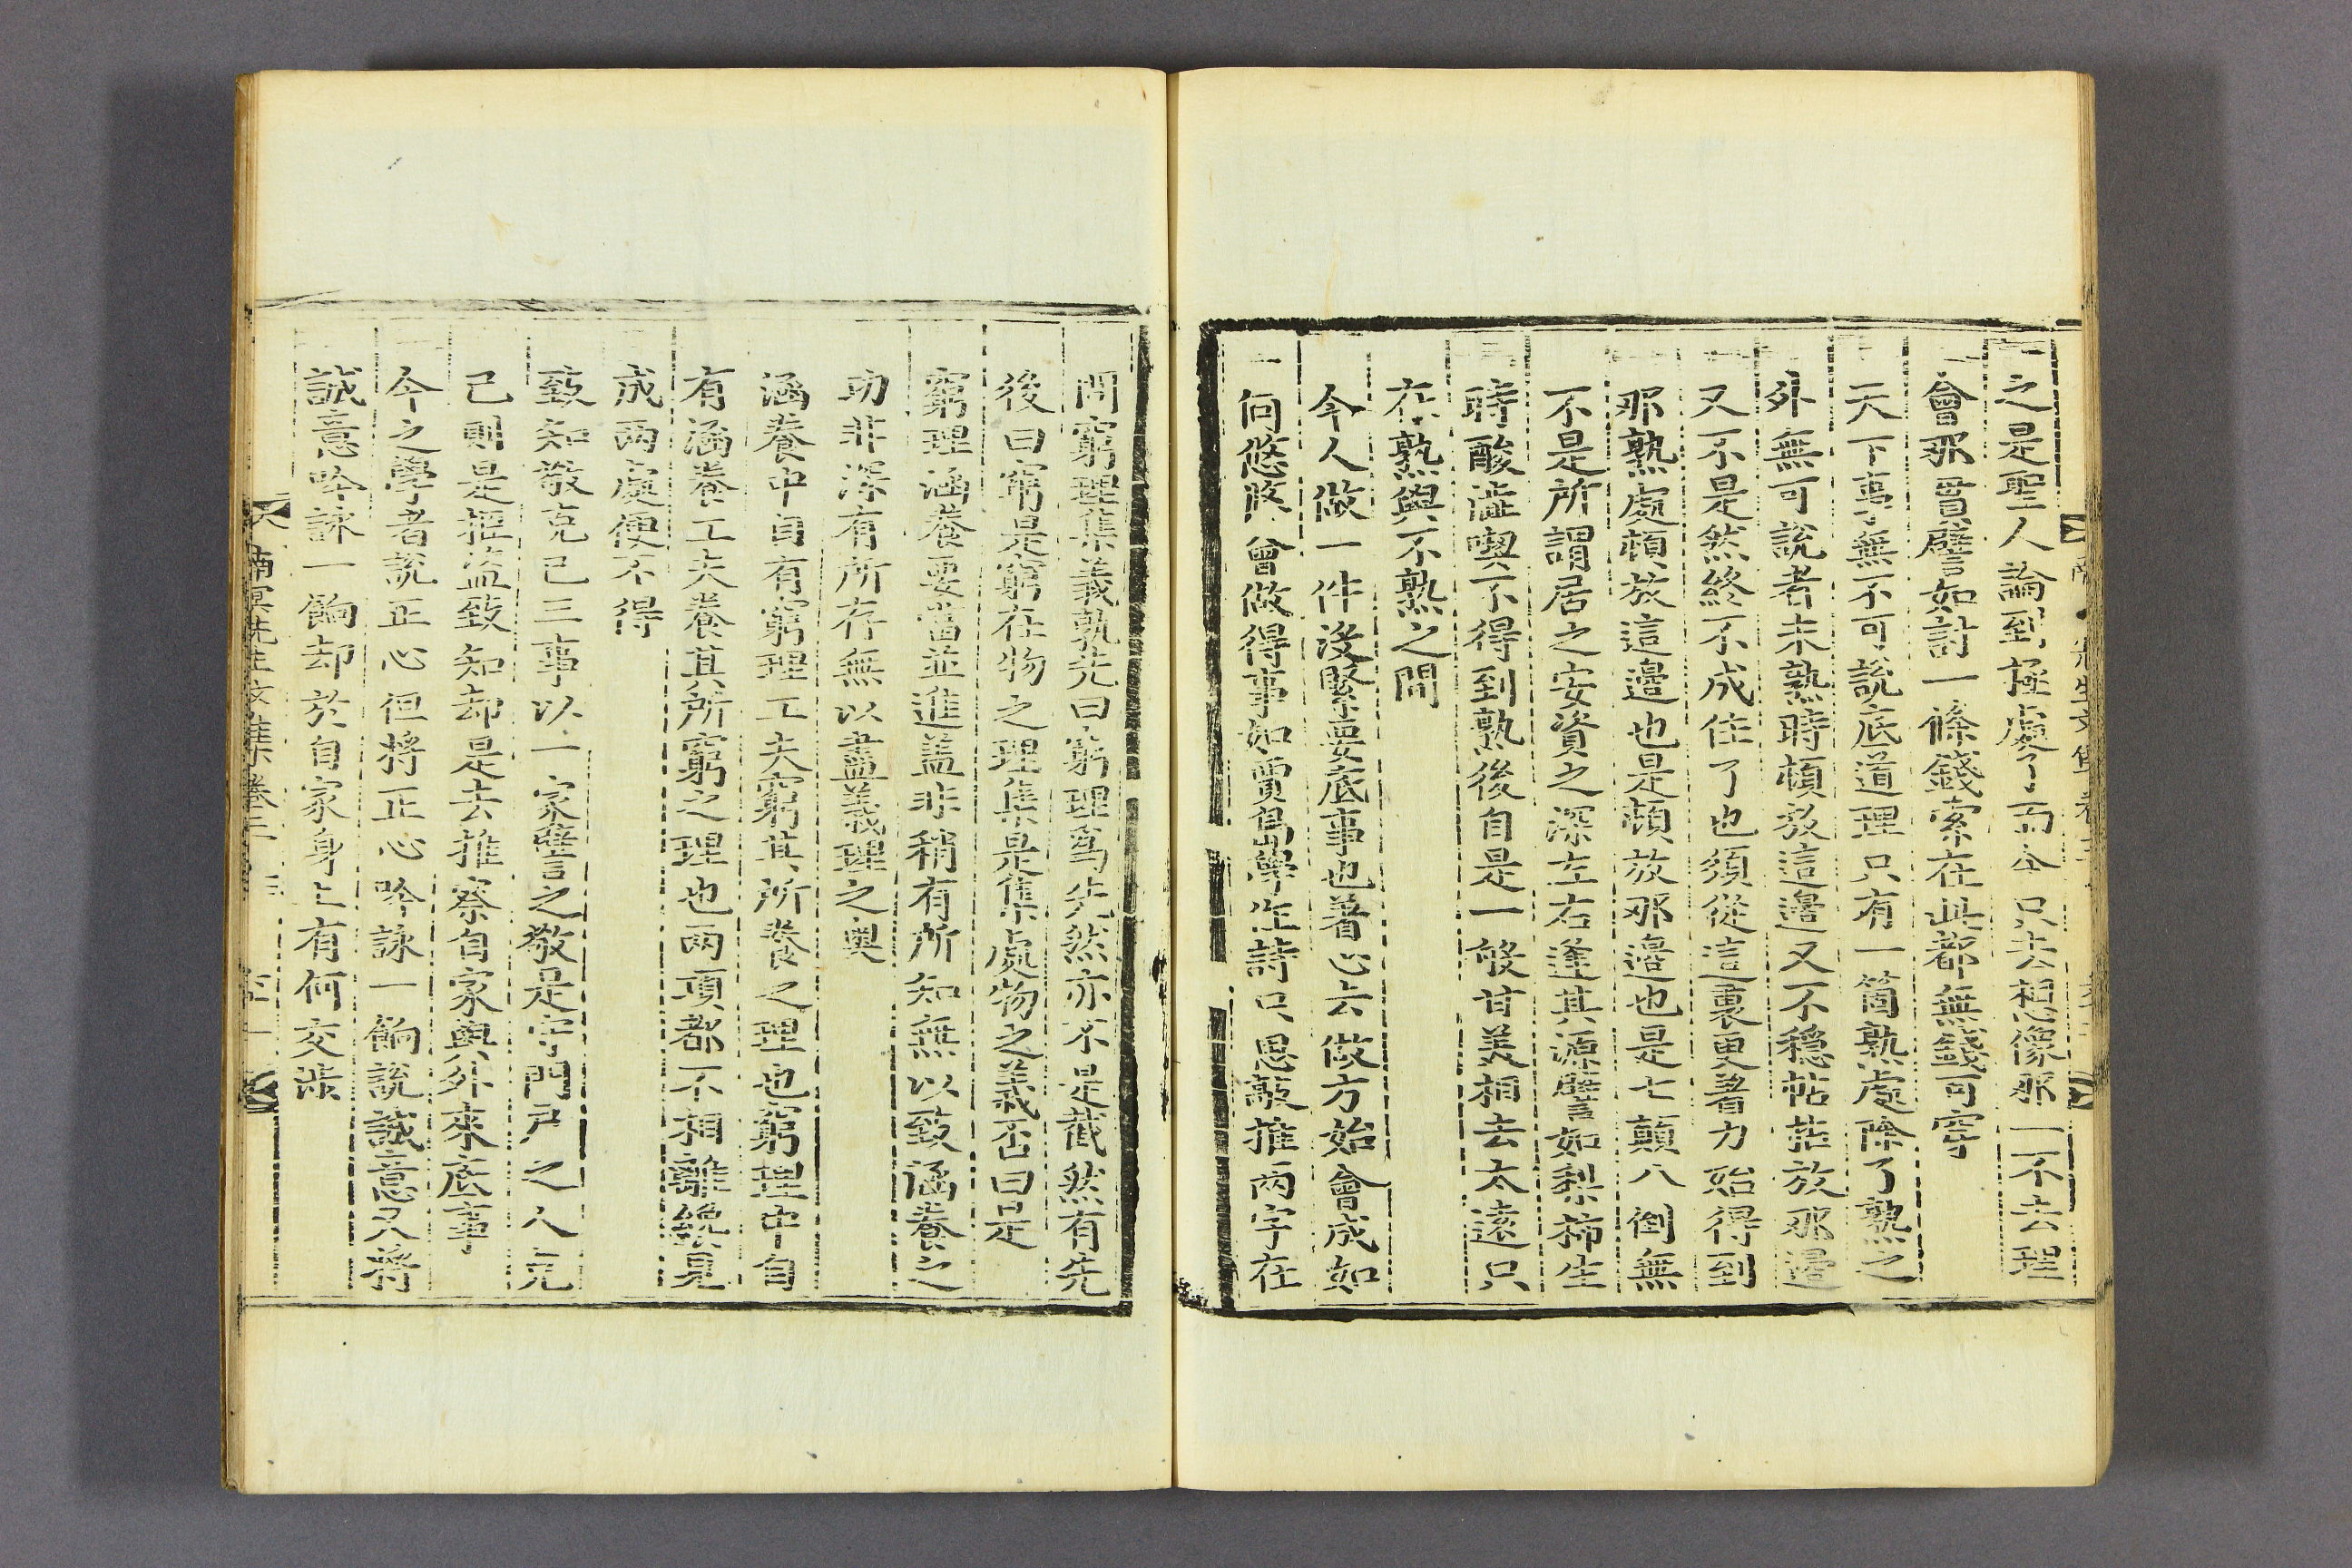 之是聖人論到極處了而今只去想像那一不去理
會那貫譬如討一條錢索在此都無錢可穿
天下事無不可說底道理只有一箇熟處除了熟之
外無可說者未熟時頓放這邊又不穩帖頓放那邊
又不是然終不成住了也須從這裏更著力始得到
那熟處頓放這邊也是頓放那邊也是七顚八倒無
不是所謂居之安資之深左右逢其源譬如梨柿生
時酸澁喫不得到熟後自是一般甘美相去大遠只
在熟與不熟之間
今人做一件沒緊要底事也著心去做方始會成如
何悠悠會做得事如賈島學作詩只思敲推兩字在
問窮理集義孰先曰窮理爲先然亦不是截然有先
後曰窮是窮在物之理集是集處物之義否曰是
窮理涵養要當並進盖非稍有所知無以致涵養之
功非深有所存無以盡義理之奧
涵養中自有窮理工夫窮其所養之理也窮理中自
有涵養工夫養其所窮之理也兩項都不相離纔見
成兩處便不得
致知敬克己三事以一家譬之敬是守門戶之人克
己則是拒盜致知却是去推察自家與外來底事
今之學者說正心但將正心吟詠一餉說誠意又將
誠意吟詠一餉却於自家身上有何交涉
南冥先生文集卷三